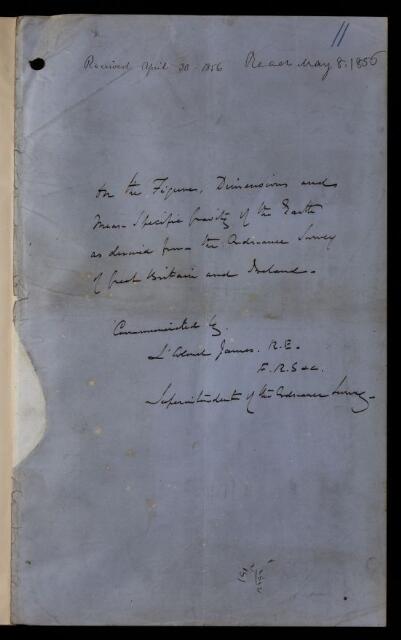 11
Received April 30 1856 Read May 8. 1856
On the Figure, Dimensions and
Mean Specific Gravity of the Earth
as derived from the Ordnance Survey
of Great Britain and Ireland.
Communicated by
Lt Colonel James. R.E.
F.R.S &c.
Superintendent of the Ordnance Survey.